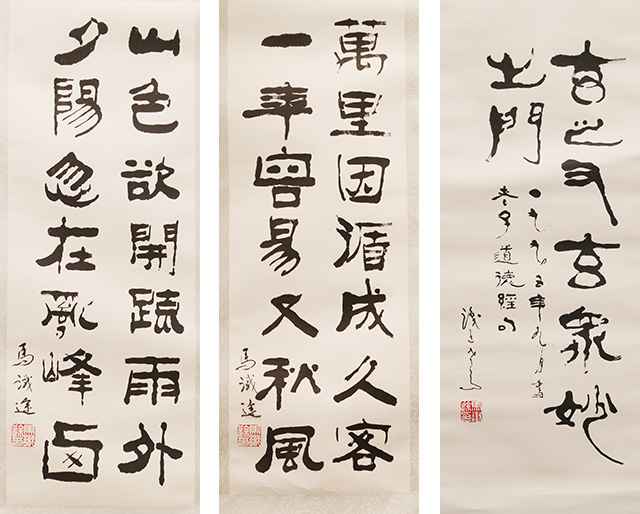 山色欲開疏雨外
夕陽忽在亂峰西
馬識途
萬里因循成久客
一年容易又秋風
馬識途
玄之又玄衆妙
之門
一九九五年九月書
老子道德經句
識途